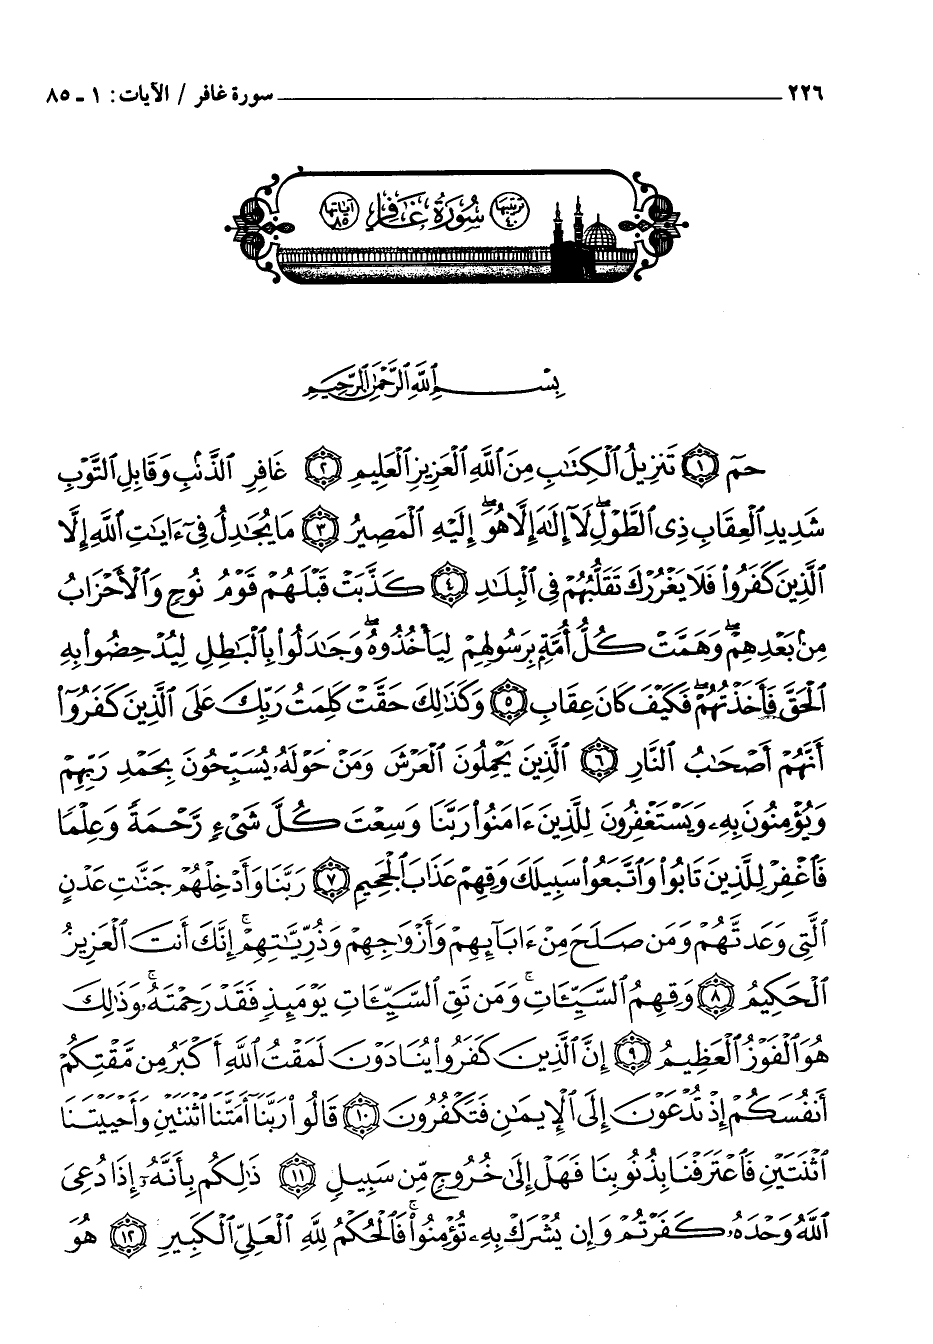 ٢٢٦ سورة غافر / الآيات: ١ - ٨٥
ترتيبها ٤٠ سُورَةُ غَافِرٍ آياتها ٨٥
بِسْمِ ٱللَّهِ ٱلرَّحْمَٰنِ ٱلرَّحِيمِ
حمٓ ١ تَنزِيلُ ٱلْكِتَٰبِ مِنَ ٱللَّهِ ٱلْعَزِيزِ ٱلْعَلِيمِ ٢ غَافِرِ ٱلذَّنۢبِ وَقَابِلِ ٱلتَّوْبِ
شَدِيدِ ٱلْعِقَابِ ذِى ٱلطَّوْلِۖ لَآ إِلَٰهَ إِلَّا هُوَۖ إِلَيْهِ ٱلْمَصِيرُ ٣ مَا يُجَٰدِلُ فِىٓ ءَايَٰتِ ٱللَّهِ إِلَّا
ٱلَّذِينَ كَفَرُوا۟ فَلَا يَغْرُرْكَ تَقَلُّبُهُمْ فِى ٱلْبِلَٰدِ ٤ كَذَّبَتْ قَبْلَهُمْ قَوْمُ نُوحٍ وَٱلْأَحْزَابُ
مِنۢ بَعْدِهِمْۖ وَهَمَّتْ كُلُّ أُمَّةٍۭ بِرَسُولِهِمْ لِيَأْخُذُوهُۖ وَجَٰدَلُوا۟ بِٱلْبَٰطِلِ لِيُدْحِضُوا۟ بِهِ
ٱلْحَقَّ فَأَخَذْتُهُمْۖ فَكَيْفَ كَانَ عِقَابِ ٥ وَكَذَٰلِكَ حَقَّتْ كَلِمَتُ رَبِّكَ عَلَى ٱلَّذِينَ كَفَرُوٓا۟
أَنَّهُمْ أَصْحَٰبُ ٱلنَّارِ ٦ ٱلَّذِينَ يَحْمِلُونَ ٱلْعَرْشَ وَمَنْ حَوْلَهُۥ يُسَبِّحُونَ بِحَمْدِ رَبِّهِمْ
وَيُؤْمِنُونَ بِهِۦ وَيَسْتَغْفِرُونَ لِلَّذِينَ ءَامَنُوا۟ رَبَّنَا وَسِعْتَ كُلَّ شَىْءٍ رَّحْمَةً وَعِلْمًا
فَٱغْفِرْ لِلَّذِينَ تَابُوا۟ وَٱتَّبَعُوا۟ سَبِيلَكَ وَقِهِمْ عَذَابَ ٱلْجَحِيمِ ٧ رَبَّنَا وَأَدْخِلْهُمْ جَنَّٰتِ عَدْنٍ
ٱلَّتِى وَعَدتَّهُمْ وَمَن صَلَحَ مِنْ ءَابَآئِهِمْ وَأَزْوَٰجِهِمْ وَذُرِّيَّٰتِهِمْۚ إِنَّكَ أَنتَ ٱلْعَزِيزُ
ٱلْحَكِيمُ ٨ وَقِهِمُ ٱلسَّيِّـَٔاتِۚ وَمَن تَقِ ٱلسَّيِّـَٔاتِ يَوْمَئِذٍ فَقَدْ رَحِمْتَهُۥۚ وَذَٰلِكَ
هُوَ ٱلْفَوْزُ ٱلْعَظِيمُ ٩ إِنَّ ٱلَّذِينَ كَفَرُوا۟ يُنَادَوْنَ لَمَقْتُ ٱللَّهِ أَكْبَرُ مِن مَّقْتِكُمْ
أَنفُسَكُمْ إِذْ تُدْعَوْنَ إِلَى ٱلْإِيمَٰنِ فَتَكْفُرُونَ ١٠ قَالُوا۟ رَبَّنَآ أَمَتَّنَا ٱثْنَتَيْنِ وَأَحْيَيْتَنَا
ٱثْنَتَيْنِ فَٱعْتَرَفْنَا بِذُنُوبِنَا فَهَلْ إِلَىٰ خُرُوجٍ مِّن سَبِيلٍ ١١ ذَٰلِكُم بِأَنَّهُۥٓ إِذَا دُعِىَ
ٱللَّهُ وَحْدَهُۥ كَفَرْتُمْ وَإِن يُشْرَكْ بِهِۦ تُؤْمِنُوا۟ۚ فَٱلْحُكْمُ لِلَّهِ ٱلْعَلِىِّ ٱلْكَبِيرِ ١٢ هُوَ